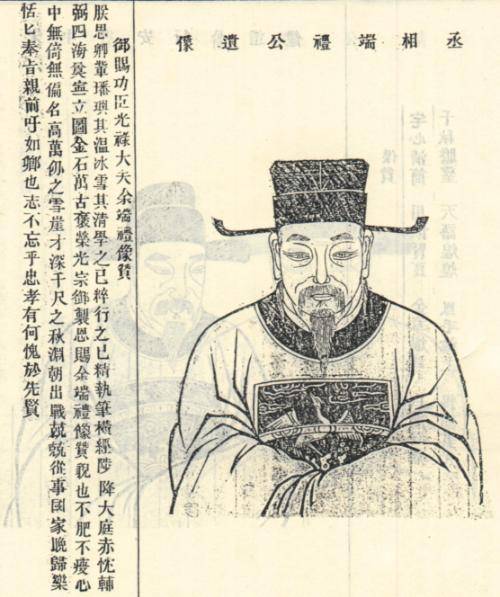 丞相端禮公遺像
御賜功臣光祿大夫余端禮像贊
朕思卿輩璠璵其溫冰雪其清學之已粹行之已精執筆橫經陟降大庭赤忱輔
弼四海奠寧立圖金石萬古褒榮光宗御製恩賜余端禮像贊貌也不肥不瘦心
中無倚無偏名高萬仞之雪崖才深千尺之秋淵朝出戰兢兢從事國家晚歸樂
恬匕奉旨親前吁如卿也志不忘乎忠孝有何愧於先賢